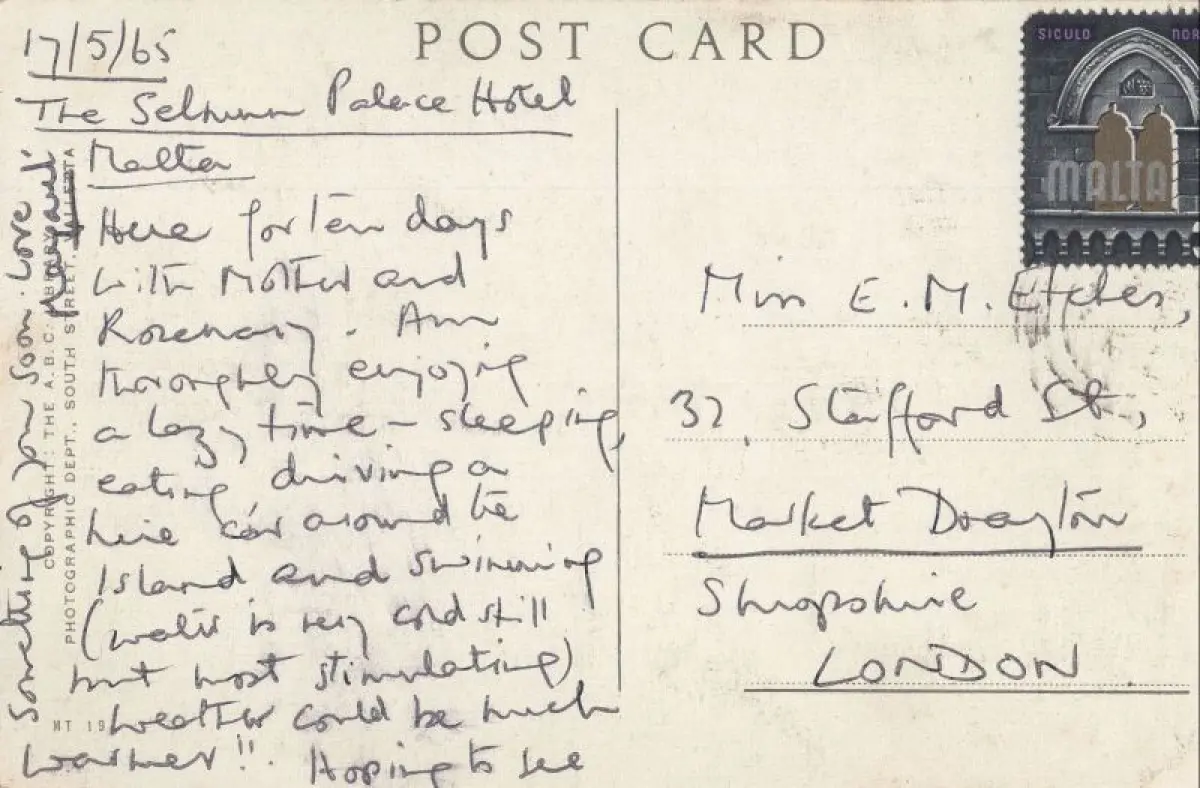 POST CARD
17/5/65
The Selmun Palace Hotel
Malta
Here for ten days
with Mother and
Rosemary. Am
thoroughly enjoying
a lazy time - sleeping,
eating, driving a
hire car around the
Island and swimming
(water is very cold still
but most stimulating)
weather could be much
warmer!! Hoping to see
something of you soon. Love
COPYRIGHT: THE A.B.C. LIBRARY
PHOTOGRAPHIC DEPT., SOUTH STREET, VALLETTA
MT 19
SICULO NOR
MALTA
Miss E. M. Etches,
32, Stafford St,
Market Drayton
Shropshire
LONDON